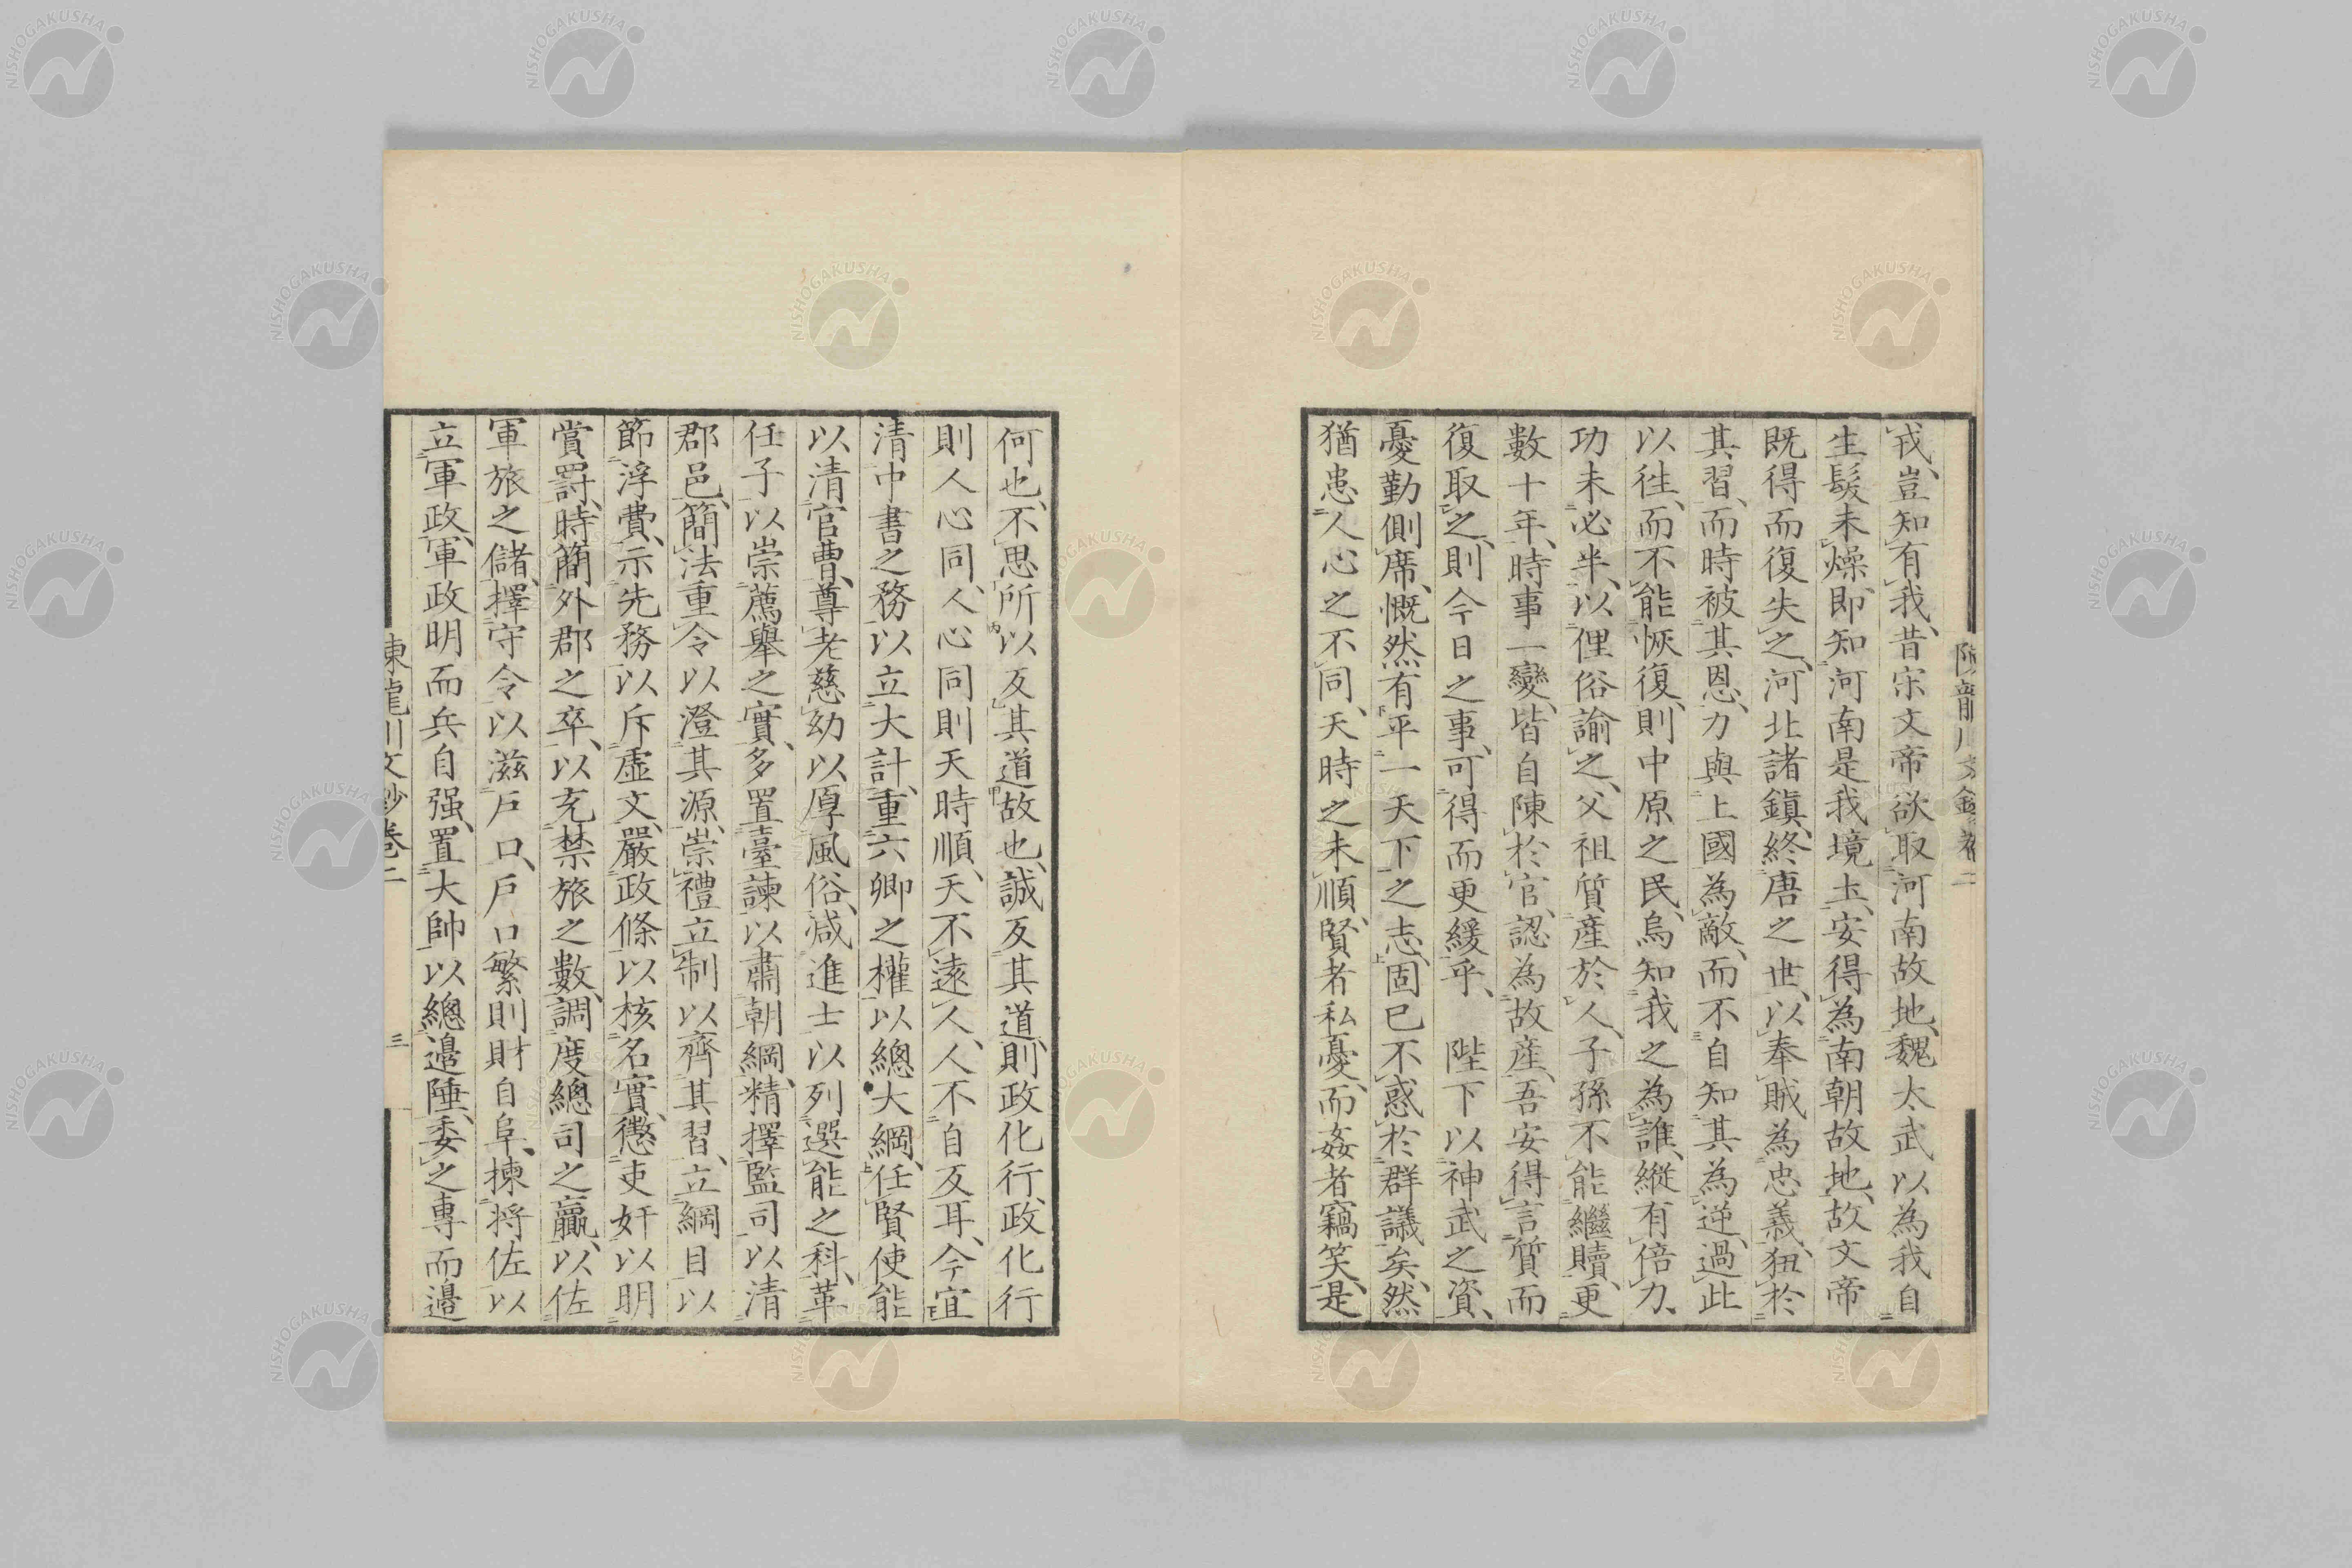 戎豈知有我昔宋文帝欲取河南故地魏太武以為我自
生髮未燥即知河南是我境土安得為南朝故地故文帝
既得而復失之河北諸鎮終唐之世以奉賊為忠義狃於
其習而時被其恩力與上國為敵而不自知其為逆過此
以往而不能恢復則中原之民烏知我之為誰縱有倍力
功未必半以俚俗諭之父祖質産於人子孫不能繼贖更
數十年時事一變皆自陳於官認為故産吾安得言質而
復取之則今日之事可得而更緩乎　陛下以神武之資
憂勤側席慨然有平一天下之志固已不惑於群議矣然
猶患人心之不同天時之未順賢者私憂而姦者竊笑是
何也不思所以反其道故也誠反其道則政化行政化行
則人心同人心同則天時順天不遠人人不自反耳今宜
清中書之務以立大計重六卿之權以總大綱任賢使能
以清官曹尊老慈幼以厚風俗減進士以列選能之科革
任子以崇薦舉之實多置臺諫以肅朝綱精擇監司以清
郡邑簡法重令以澄其源崇禮立制以齊其習立綱目以
節浮費示先務以斥虛文嚴政條以核名實懲吏奸以明
賞罰時簡外郡之卒以充禁旅之數調度總司之贏以佐
軍旅之儲擇守令以滋戶口戶口繁則財自阜揀將佐以
立軍政軍政明而兵自强置大帥以總邉陲委之專而邉
陳龍川文鈔卷二
三
NISHOGAKUSHA